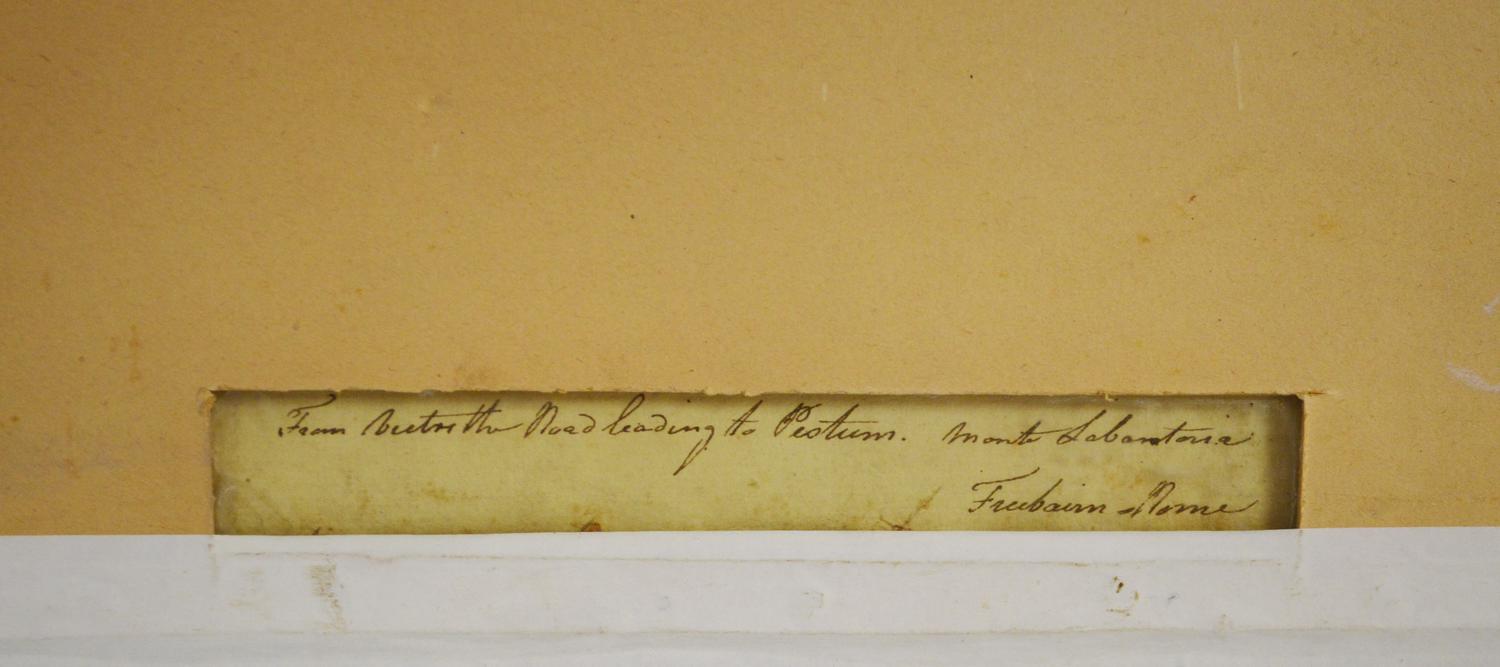 From Vietri the Road leading to Pestum. Monte Labantoria
Freebairn Rome